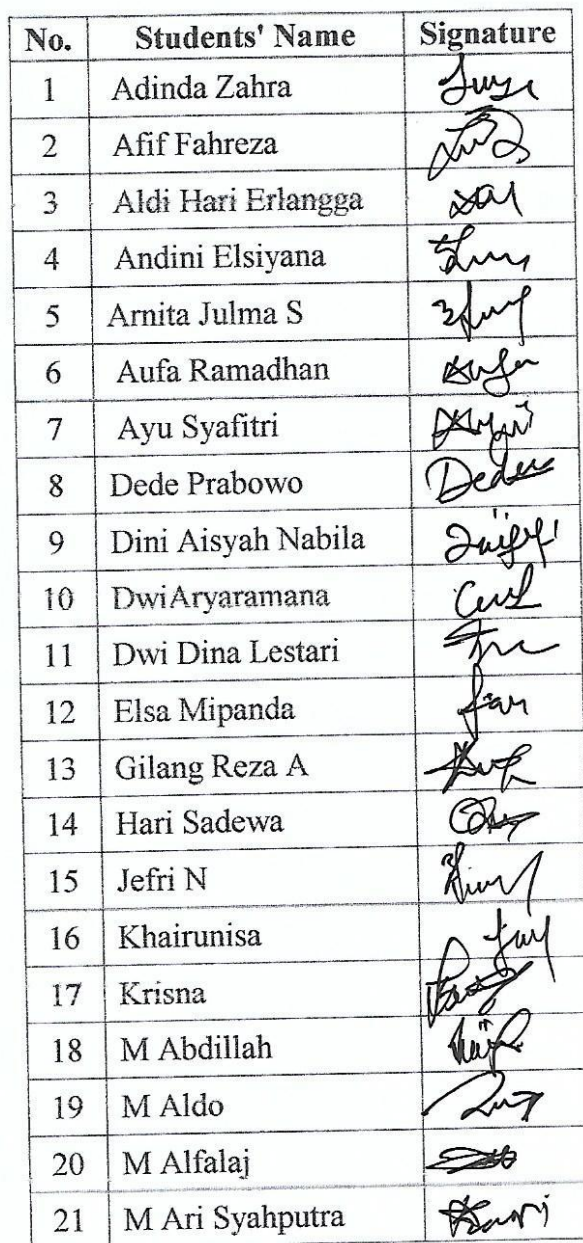 No. Students' Name Signature
1 Adinda Zahra
2 Afif Fahreza
3 Aldi Hari Erlangga
4 Andini Elsiyana
5 Arnita Julma S
6 Aufa Ramadhan
7 Ayu Syafitri
8 Dede Prabowo
9 Dini Aisyah Nabila
10 DwiAryaramana
11 Dwi Dina Lestari
12 Elsa Mipanda
13 Gilang Reza A
14 Hari Sadewa
15 Jefri N
16 Khairunisa
17 Krisna
18 M Abdillah
19 M Aldo
20 M Alfalaj
21 M Ari Syahputra